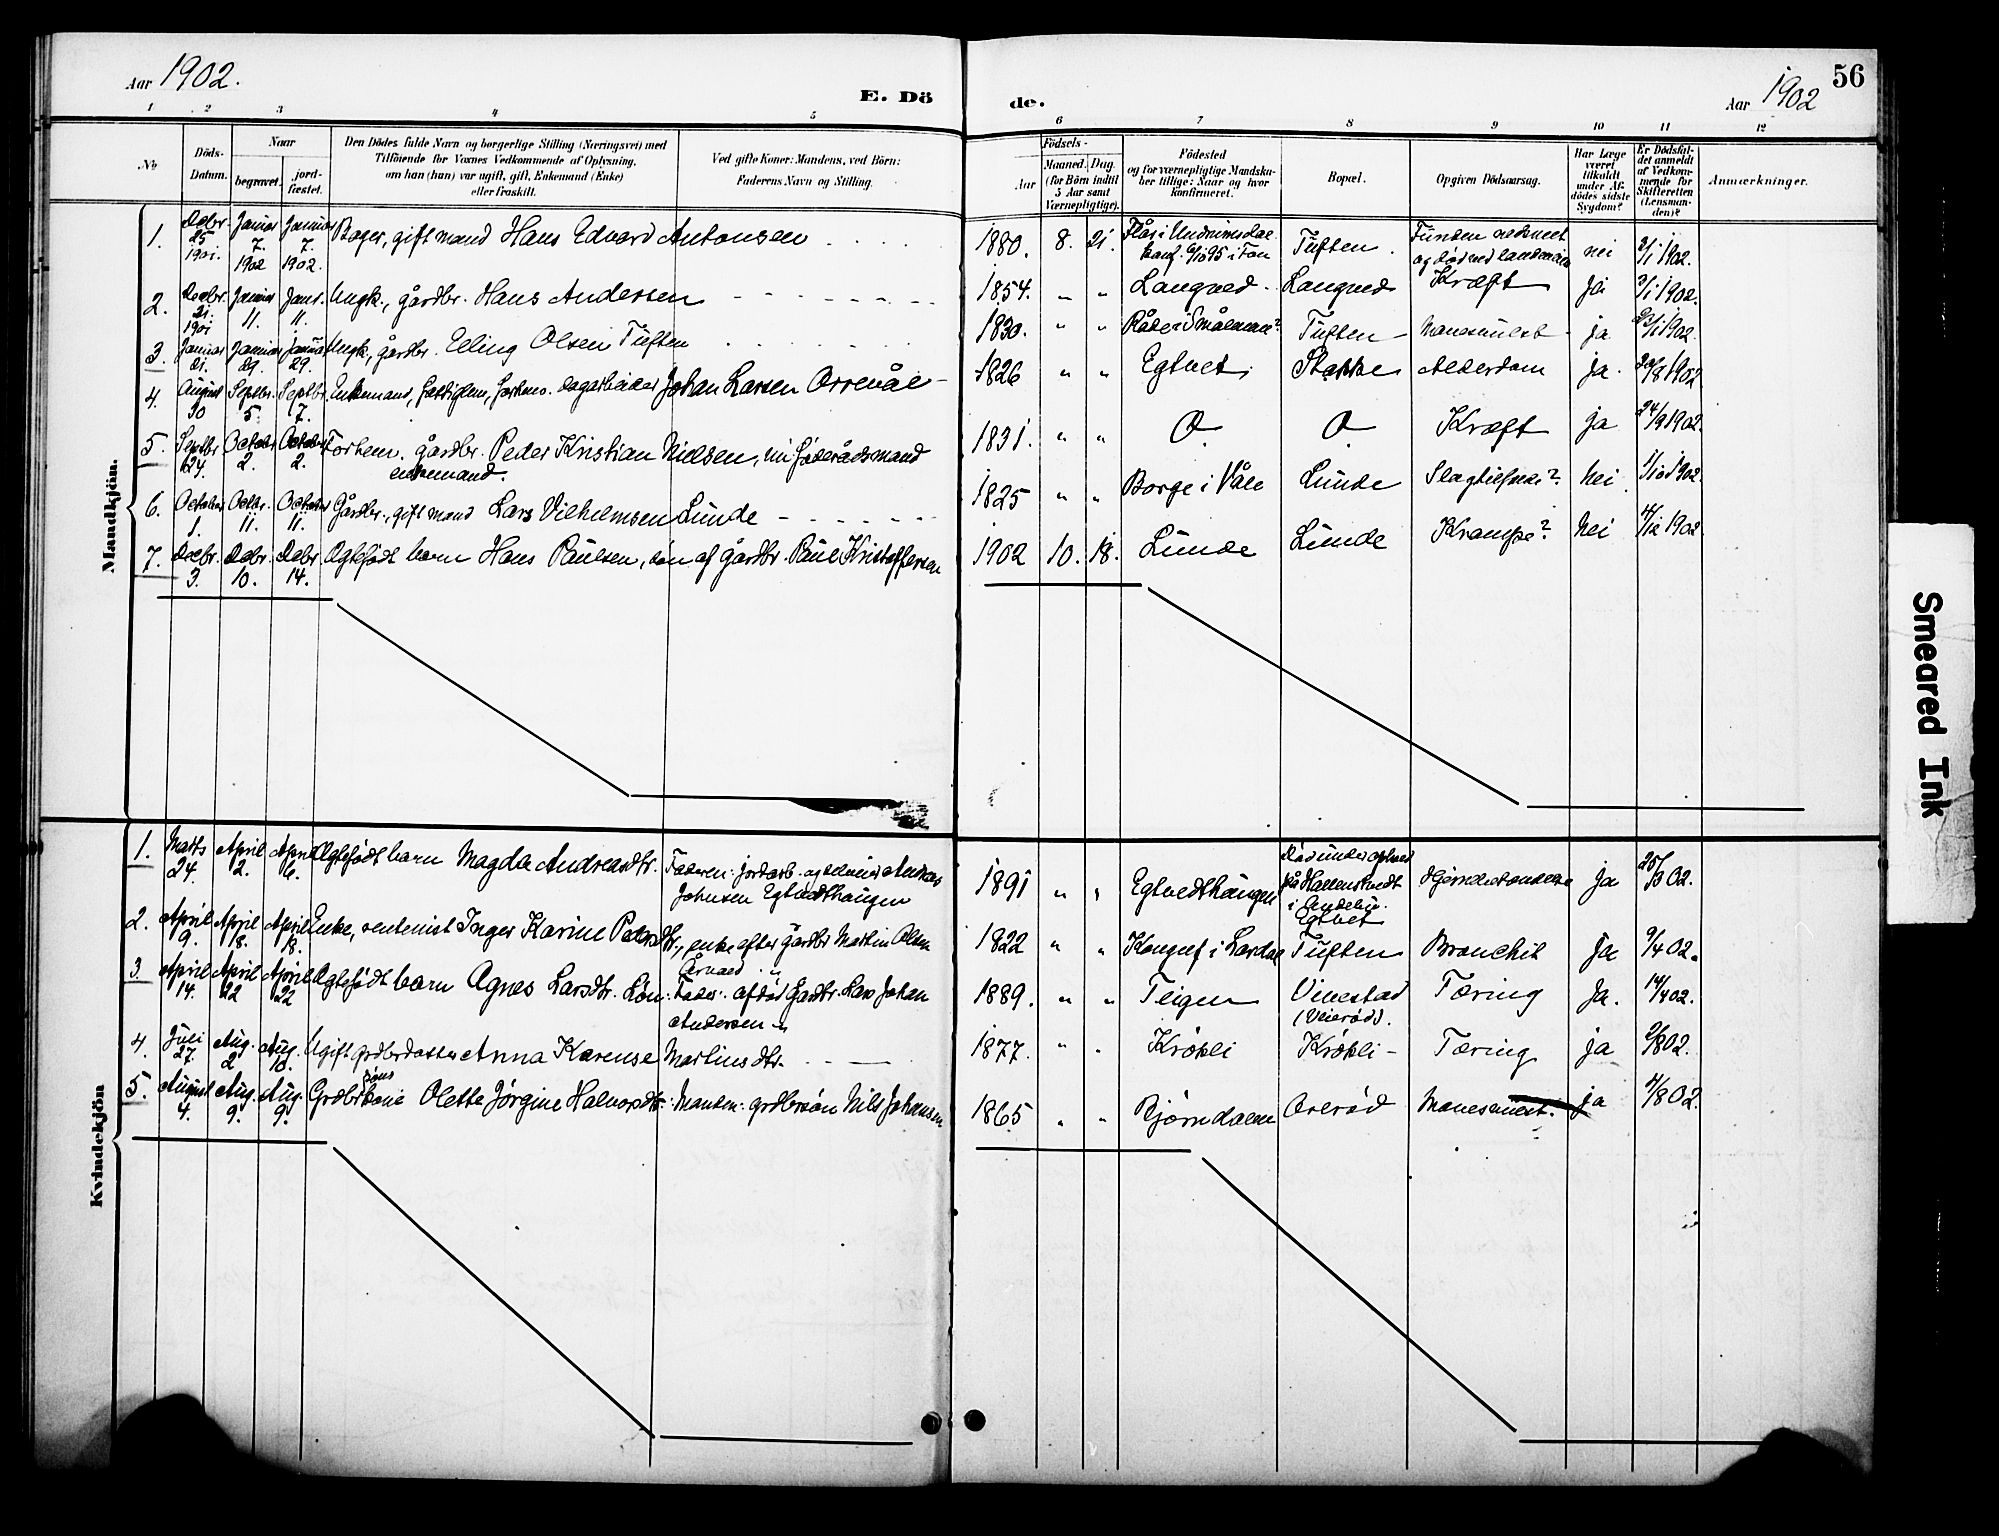 56
Aar 1902.
E. Dö
de.
Aar 1902
1 2 3 4 5 6 7 8 9 10 11 12
No
Döds-
Datum.
Naar
begravet.
jord-
fæstet.
Den Dödes fulde Navn og borgerlige Stilling (Næringsvei) med
Tilföiende for Voxnes Vedkommende af Oplysning,
om han (hun) var ugift, gift, Enkemand (Enke)
eller fraskilt.
Ved gifte Koner: Mandens, ved Börn:
Faderens Navn og Stilling.
Födsels-
Aar
Maaned. Dag.
(for Börn indtil
5 Aar samt
Værnepligtige).
Födested
og for værnepligtige Mandska-
ber tillige: Naar og hvor
konfirmeret.
Bopæl.
Opgiven Dödsaarsag.
Har Læge
været
tilkaldt
under Af-
dödes sidste
Sygdom?
Er Dödsfal-
det anmeldt
af Vedkom-
mende for
Skifteretten
(Lensman-
den)?
Anmærkninger.
Mandkjön.
1. Decbr. 25 1901. Januar 7. 1902 Januar 7. 1902. Bager, gift mand Hans Edvard Antonsen 1880. 8. 21. Flås i konf. 1/10 95 i Tuften. Funden og død ved nei 2/1 1902.
2. Decbr. 21. 1901 Januar 11. Janr. 11. Ungk., gårdbr. Hans Andersen 1854. " " Langved. Langved Kræft ja 3/1 1902.
3. Januar 21. Januar 29. Januar 29. Ungk., gårdbr. Elling Olsen Tuften 1830. " " Råde i Smålenene? Tuften Mavesmerte ja 22/1 1902.
4. August 30 Septbr. 5. Septbr. 7. Enkemand, fattiglem, forhenv. dagarbeider Johan Larsen Orrevål 1826 " " Egtvet Stokke Alderdom ja. 30/8 1902
5. Septbr. 24. October 2. October 2. Forhenv. gårdbr. Peder Kristian Nielsen, nu føderådsmand
enkemand. 1831. " " O O Kræft ja 24/9 1902.
6. October 1. Octbr. 11. October 11. Gårdbr., gift mand Lars Vilhelmsen Lunde 1825 " " Borge i Våle Lunde Slagtilfælde? nei 1/10 1902.
7. Decbr. 3. Decbr. 10. Decbr 14. Ægtefødt barn Hans Paulsen, søn af gårdbr. Paul Kristoffersen 1902 10. 18. Lunde Lunde Krampe? nei 4/12 1902.
Kvindekjön
1. Marts 24. April 2. April 6. Ægtefødt barn Magda Andreasdtr. Faderen: jordarb. og Andreas
Johnsen Egtvedthaugen 1891 " " Egtvedthaugen Død under ophold
på Hallenstvedt
i Andebu.
Egtvet Hjernebetændelse ja 25/3 02.
2. April 9. April 18. April 18. Enke, rentenist Inger Karine Pedersdtr., enke efter gårdbr. Martin Olsen
Årvold 1822 " " i Lardal Tuften Bronchit ja 9/4 02.
3. April 14. April 22 April 22 Ægtefødt barn Agnes Larsdtr. Løn: Fader: afdød Gårdbr. Lars Johan
Andersen 1889. " " Teigen Vivestad
(Veierød). Tæring ja. 14/4 02.
4. Juli 27. Aug. 2 Aug. 10. Ugift grdbrdatter Anna Karense Martinsdtr. 1877. " " Krökli Krökli Tæring ja 2/8 02.
5. August 4. Aug. 9. Aug. 9. Grdbrsønskone Olette Jörgine Halvorsdtr. Manden: grdbrsøn Nils Johansen 1865 " " Bjørndalen Orerød Mavesmerte. ja 4/8 02.
Smeared Ink